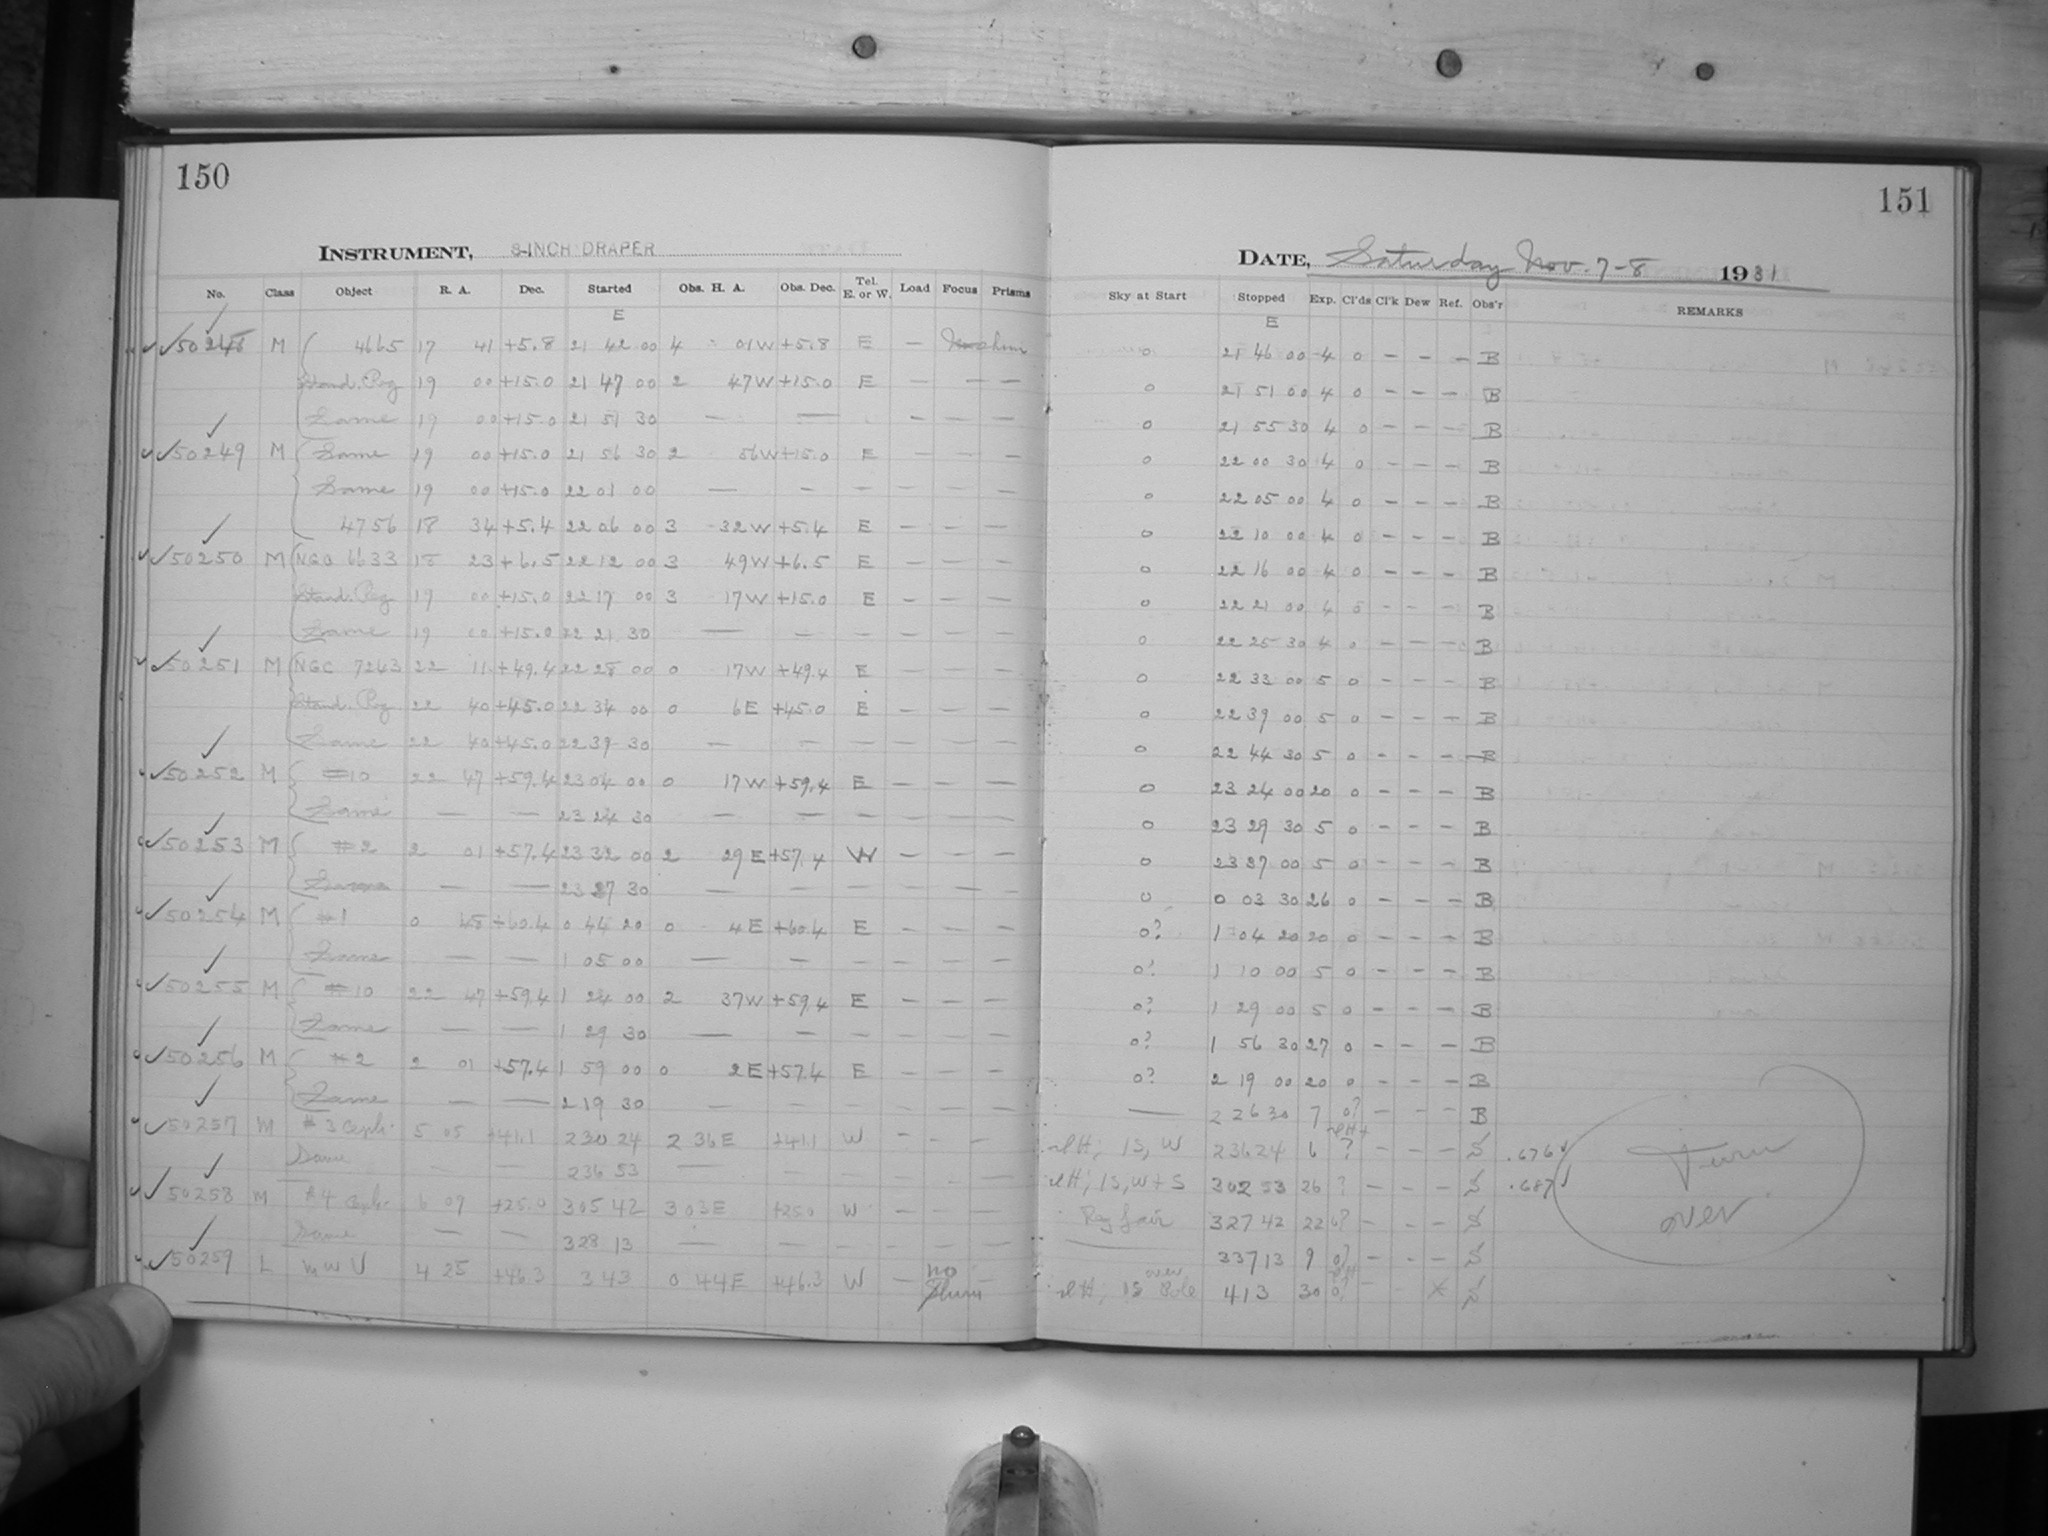 150
INSTRUMENT, 8-INCH DRAPER
No. Class Object R. A. Dec. Started Obs. H. A. Obs. Dec. Tel. E. or W. Load Focus Prisms
E
50248 M 4665 17 41 +5.8 21 42 00 4 01W +5.8 E —
Stand. Reg 19 00 +15.0 21 47 00 2 47W +15.0 E — — —
Same 19 00 +15.0 21 51 30 — — - — —
50249 M Same 19 00 +15.0 21 56 30 2 56W +15.0 E — — —
Same 19 00 +15.0 22 01 00 — — — — — —
4756 18 34 +5.4 22 06 00 3 32W +5.4 E — — —
50250 M NGC 6633 18 23 +6.5 22 12 00 3 49W +6.5 E — — —
Stand. Reg 19 00 +15.0 22 17 00 3 17W +15.0 E — — —
Same 19 00 +15.0 22 21 30 — — — — — —
50251 M NGC 7243 22 11 +49.4 22 28 00 0 17W +49.4 E — — —
Stand. Reg 22 40 +45.0 22 34 00 0 6E +45.0 E — — —
Same 22 40 +45.0 22 39 30 — — — — — —
50252 M #10 22 47 +59.4 23 04 00 0 17W +59.4 E — — —
Same — — 23 24 30 — — — — — —
50253 M #2 2 01 +57.4 23 32 00 2 29E +57.4 W — — —
Same — — 23 37 30 — — — — — —
50254 M #1 0 48 +60.4 0 44 20 0 4E +60.4 E — — —
Same — — 1 05 00 — — — — — —
50255 M #10 22 47 +59.4 1 24 00 2 37W +59.4 E — — —
Same — — 1 29 30 — — — — — —
50256 M #2 2 01 +57.4 1 59 00 0 2E +57.4 E — — —
Same — — 2 19 30 — — — — — —
50257 M #3 Ceph. 5 05 +41.1 2 30 24 2 36E +41.1 W — — —
Same — — 2 36 53 — — — — — —
50258 M #4 Ceph. 6 09 +25.0 3 05 42 3 03E +25.0 W — — —
Same — — 3 28 13 — — — — — —
50259 L M W V 4 25 +46.3 3 43 0 44E +46.3 W — no —
151
DATE, Saturday Nov. 7-8 1931
Sky at Start Stopped Exp. Cl'ds Cl'k Dew Ref. Obs'r REMARKS
E
0 21 46 00 4 0 — — — B
0 21 51 00 4 0 — — — B
0 21 55 30 4 0 — — — B
0 22 00 30 4 0 — — — B
0 22 05 00 4 0 — — — B
0 22 10 00 4 0 — — — B
0 22 16 00 4 0 — — — B
0 22 21 00 4 0 — — — B
0 22 25 30 4 0 — — — B
0 22 33 00 5 0 — — — B
0 22 39 00 5 0 — — — B
0 22 44 30 5 0 — — — B
0 23 24 00 20 0 — — — B
0 23 29 30 5 0 — — — B
0 23 37 00 5 0 — — — B
0 0 03 30 26 0 — — — B
0? 1 04 20 20 0 — — — B
0? 1 10 00 5 0 — — — B
0? 1 29 00 5 0 — — — B
0? 1 56 30 27 0 — — — B
0? 2 19 00 20 0 — — — B
— 2 26 30 7 0? — — — B
2 36 24 6 ? — — — S .676
3 02 53 26 ? — — — S .687
3 27 42 22 0? — — — S
— 3 37 13 9 0? — — — S
over Pole 4 13 30 0? - - X S
Turn
over